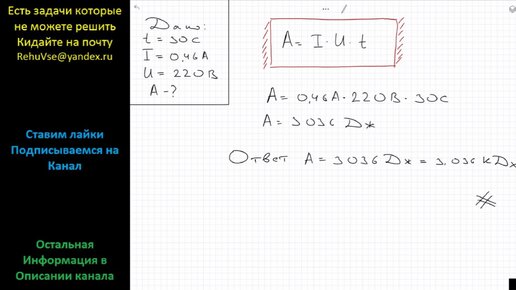 Есть задачи которые
не можете решить
Кидайте на почту
RehuVse@yandex.ru
Ставим лайки
Подписываемся на
Канал
Остальная
Информация в
Описании канала
Дано:
t = 30с
I = 0,46А
U = 220В
A - ?
A = I · U · t
A = 0,46А · 220В · 30с
A = 3036 Дж
Ответ A = 3036 Дж = 3,036 кДж